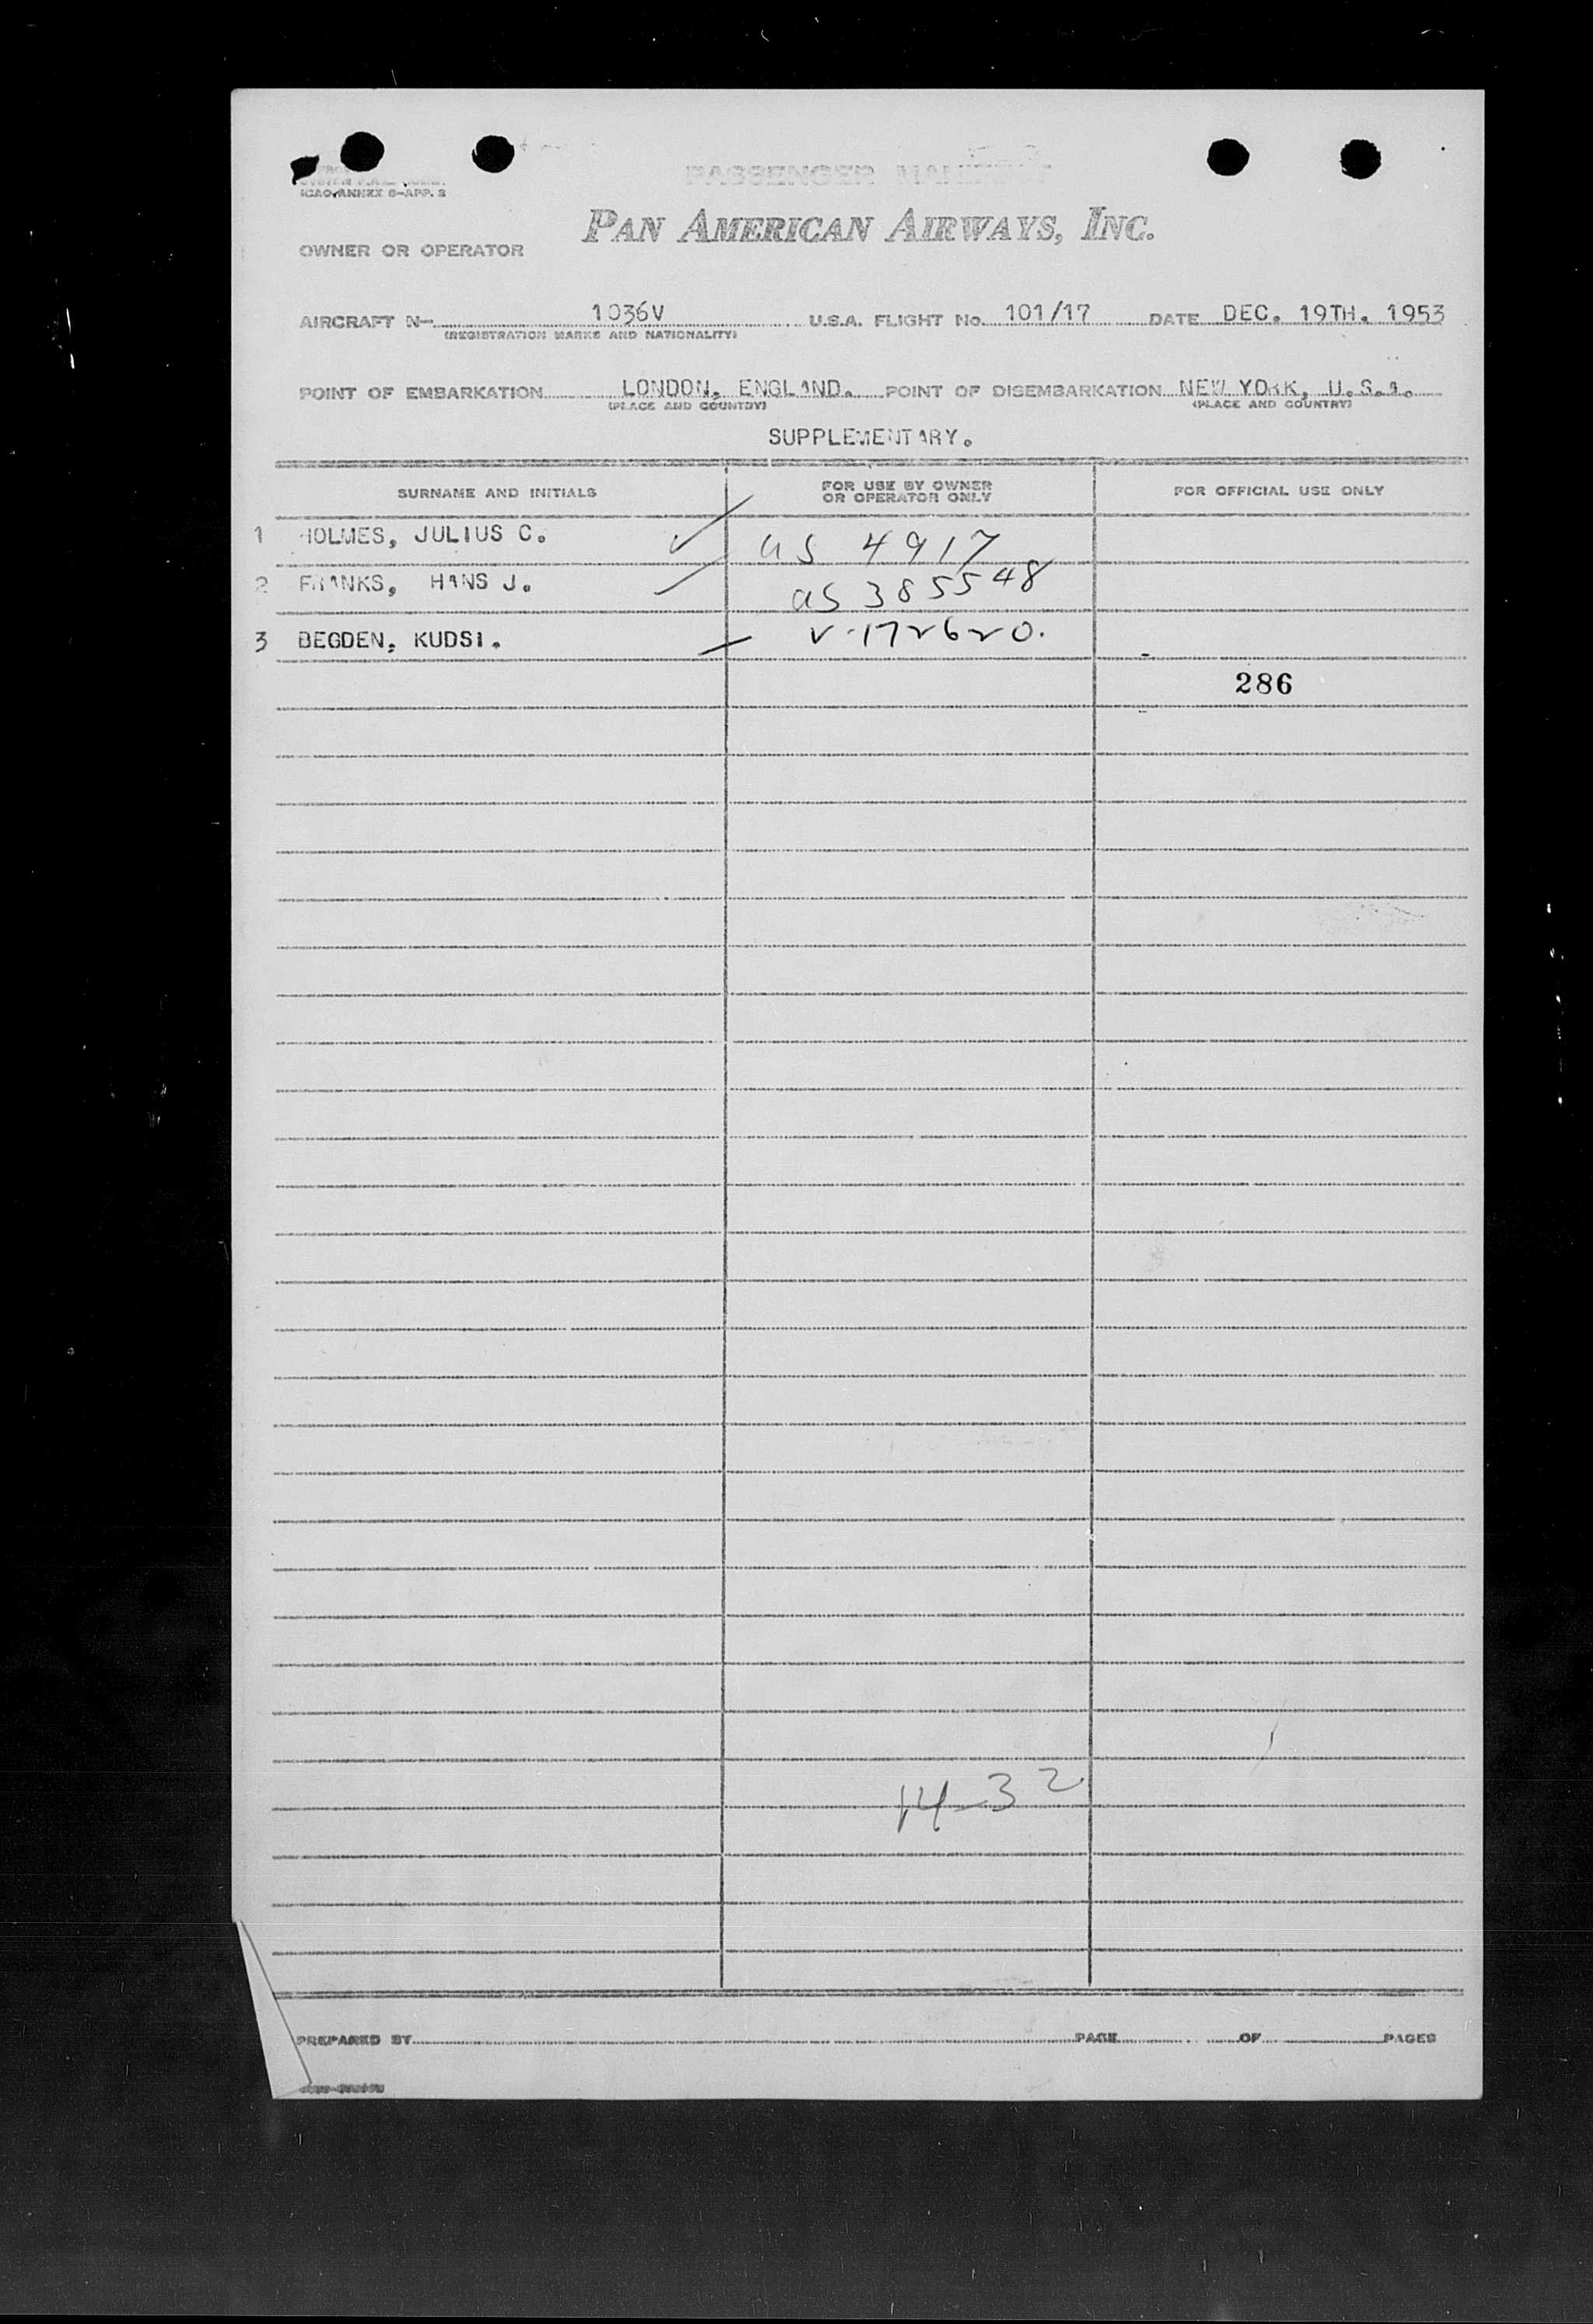 PASSENGER MANIFEST
ICAO ANNEX 9-APP. 2
PAN AMERICAN AIRWAYS, INC.
OWNER OR OPERATOR
AIRCRAFT N- 1036V U.S.A. FLIGHT No. 101/17 DATE DEC. 19TH. 1953
(REGISTRATION MARKS AND NATIONALITY)
POINT OF EMBARKATION LONDON, ENGLAND. POINT OF DISEMBARKATION NEW YORK, U.S.A.
(PLACE AND COUNTRY) (PLACE AND COUNTRY)
SUPPLEMENTARY.
SURNAME AND INITIALS FOR USE BY OWNER OR OPERATOR ONLY FOR OFFICIAL USE ONLY
1 HOLMES, JULIUS C. ✓ US 4917
2 FRANKS, HANS J. US 385548
3 BEGDEN, KUDSI. V-172620.
286
14-32
PREPARED BY PAGE OF PAGES